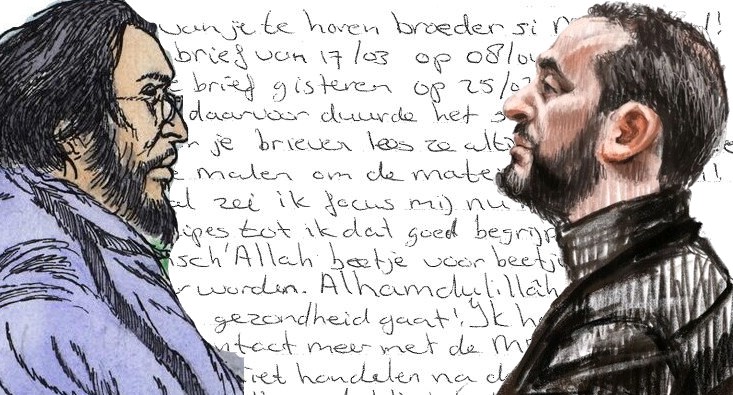 van je te horen broeder si
brief van 17/03 op 08/04
brief gisteren op 25/0
daarvoor duurde het
je brieven lees ze
malen om de mate
zei ik focus mij nu
tot ik dat goed begrijp
isch'Allah beetje voor beetje
worden. Alhamdulillah
gezondheid gaat! Ik h
ntact meer met de
niet handelen na d